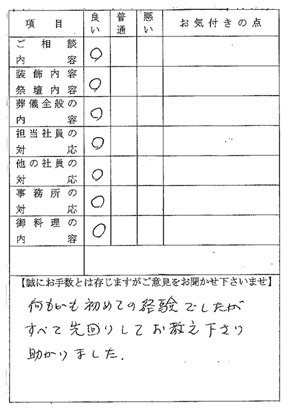 項目 良い 普通 悪い お気付きの点
ご相談内容 ○
装飾内容祭壇内容 ○
葬儀全般の内容 ○
担当社員の対応 ○
他の社員の対応 ○
事務所の対応 ○
御料理の内容 ○
【誠にお手数とは存じますがご意見をお聞かせ下さいませ】
何もかも初めての経験でしたが
すべて先回りしてお教え下さり
助かりました.